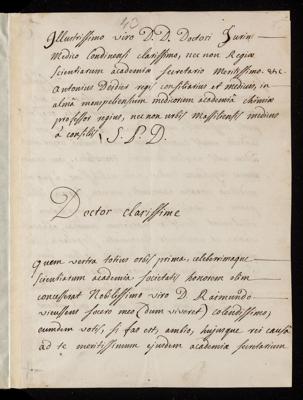 43
Illustrissimo viro D. D. Doctori Jurin
Medico Londinensi clarissimo, nec non Regiæ
scientiarum academiæ secretario Meritissimo. &c.
Antonius Deidier regis consiliarius et medicus, in
almâ monspeliensium medicorum academiâ chimiæ
professor regius, nec non urbis Massiliensis medicus
â consiliis S. P. D.
Doctor clarissime
quem vestra totius orbis prima, celeberrimaque
scientiarum academiæ societatis honorem olim
concesserat Nobilissimo viro D. Raimundo
vieussens socero meo (dum viveret) colendissimo,
eumdem votis, si fas est, ambio, hujusque rei causâ
ad te meritissimum ejusdem academiæ secretarium